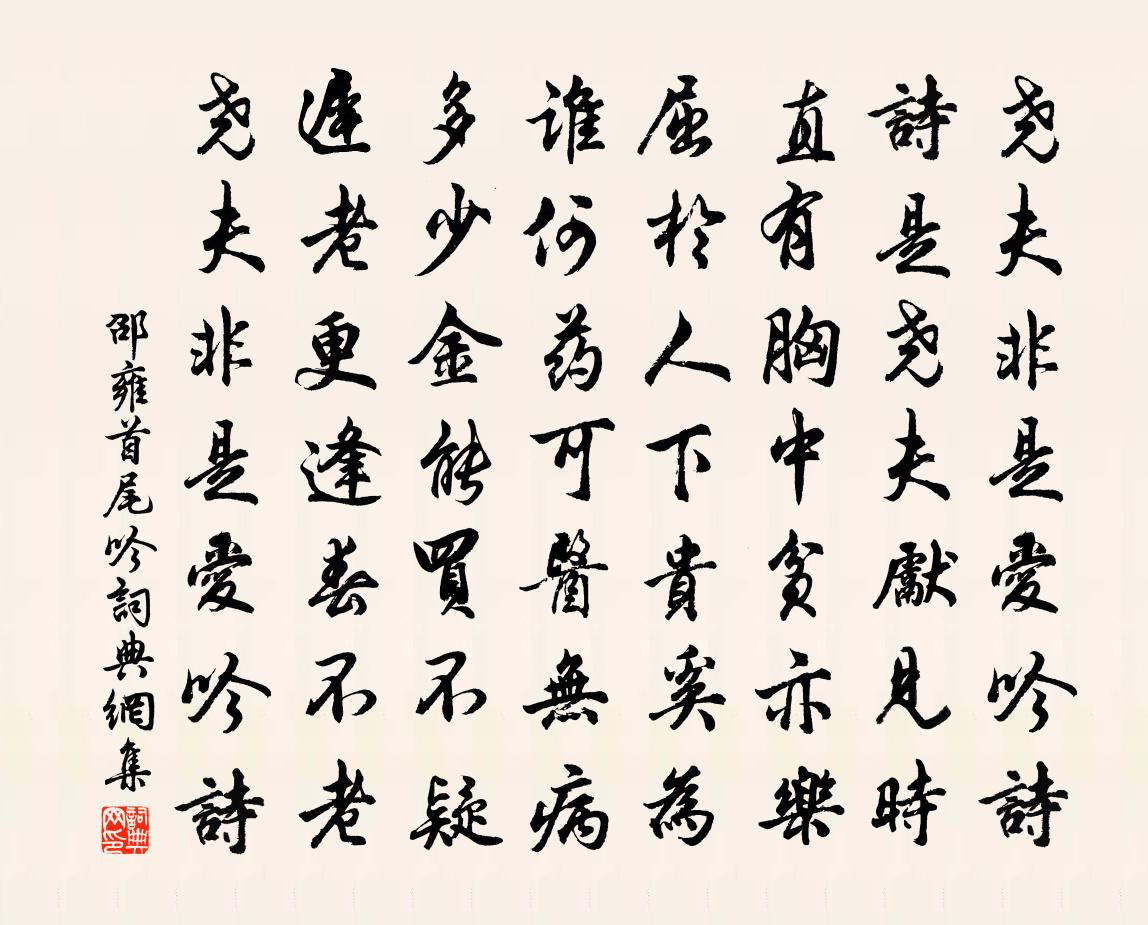 尧夫非是愛吟詩
詩是尧夫獻見時
直有胸中貧亦樂
屈於人下貴奚為
谁何药可醫無病
多少金能買不疑
遲老更逢春不老
尧夫非是愛吟詩
邵雍首尾吟詞典網集
詞典网印